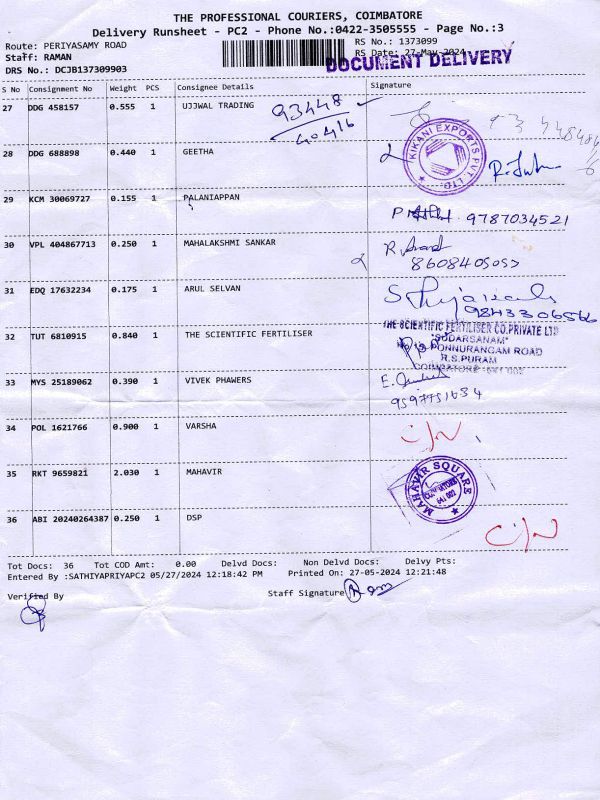 THE PROFESSIONAL COURIERS, COIMBATORE
Delivery Runsheet - PC2 - Phone No.:0422-3505555 - Page No.:3
Route: PERIYASAMY ROAD
RS No.: 1373099
Staff: RAMAN
RS Date: 27-May-2024
DOCUMENT DELIVERY
DRS No.: DCJB137309903
S No Consignment No Weight PCS Consignee Details Signature
27 DDG 458157 0.555 1 UJJWAL TRADING
93448
40416
28 DDG 688898 0.440 1 GEETHA
KIKANI EXPORTS PVT. LTD.
29 KCM 30069727 0.155 1 PALANIAPPAN
9787034521
30 VPL 404867713 0.250 1 MAHALAKSHMI SANKAR
31 EDQ 17632234 0.175 1 ARUL SELVAN
9843306566
32 TUT 6810915 0.840 1 THE SCIENTIFIC FERTILISER
THE SCIENTIFIC FERTILISER CO.PRIVATE LTD
"SUDARSANAM"
PONNURANGAM ROAD
R.S.PURAM
COIMBATORE - 641 002
33 MYS 25189062 0.390 1 VIVEK PHAWERS
34 POL 1621766 0.900 1 VARSHA
C/N
35 RKT 9659821 2.030 1 MAHAVIR
MAHAVIR SQUARE
COIMBATORE
641 002
36 ABI 20240264387 0.250 1 DSP
C/N
Tot Docs: 36 Tot COD Amt: 0.00 Delvd Docs: Non Delvd Docs: Delvy Pts:
Entered By :SATHIYAPRIYAPC2 05/27/2024 12:18:42 PM Printed On: 27-05-2024 12:21:48
Verified By
Staff Signature